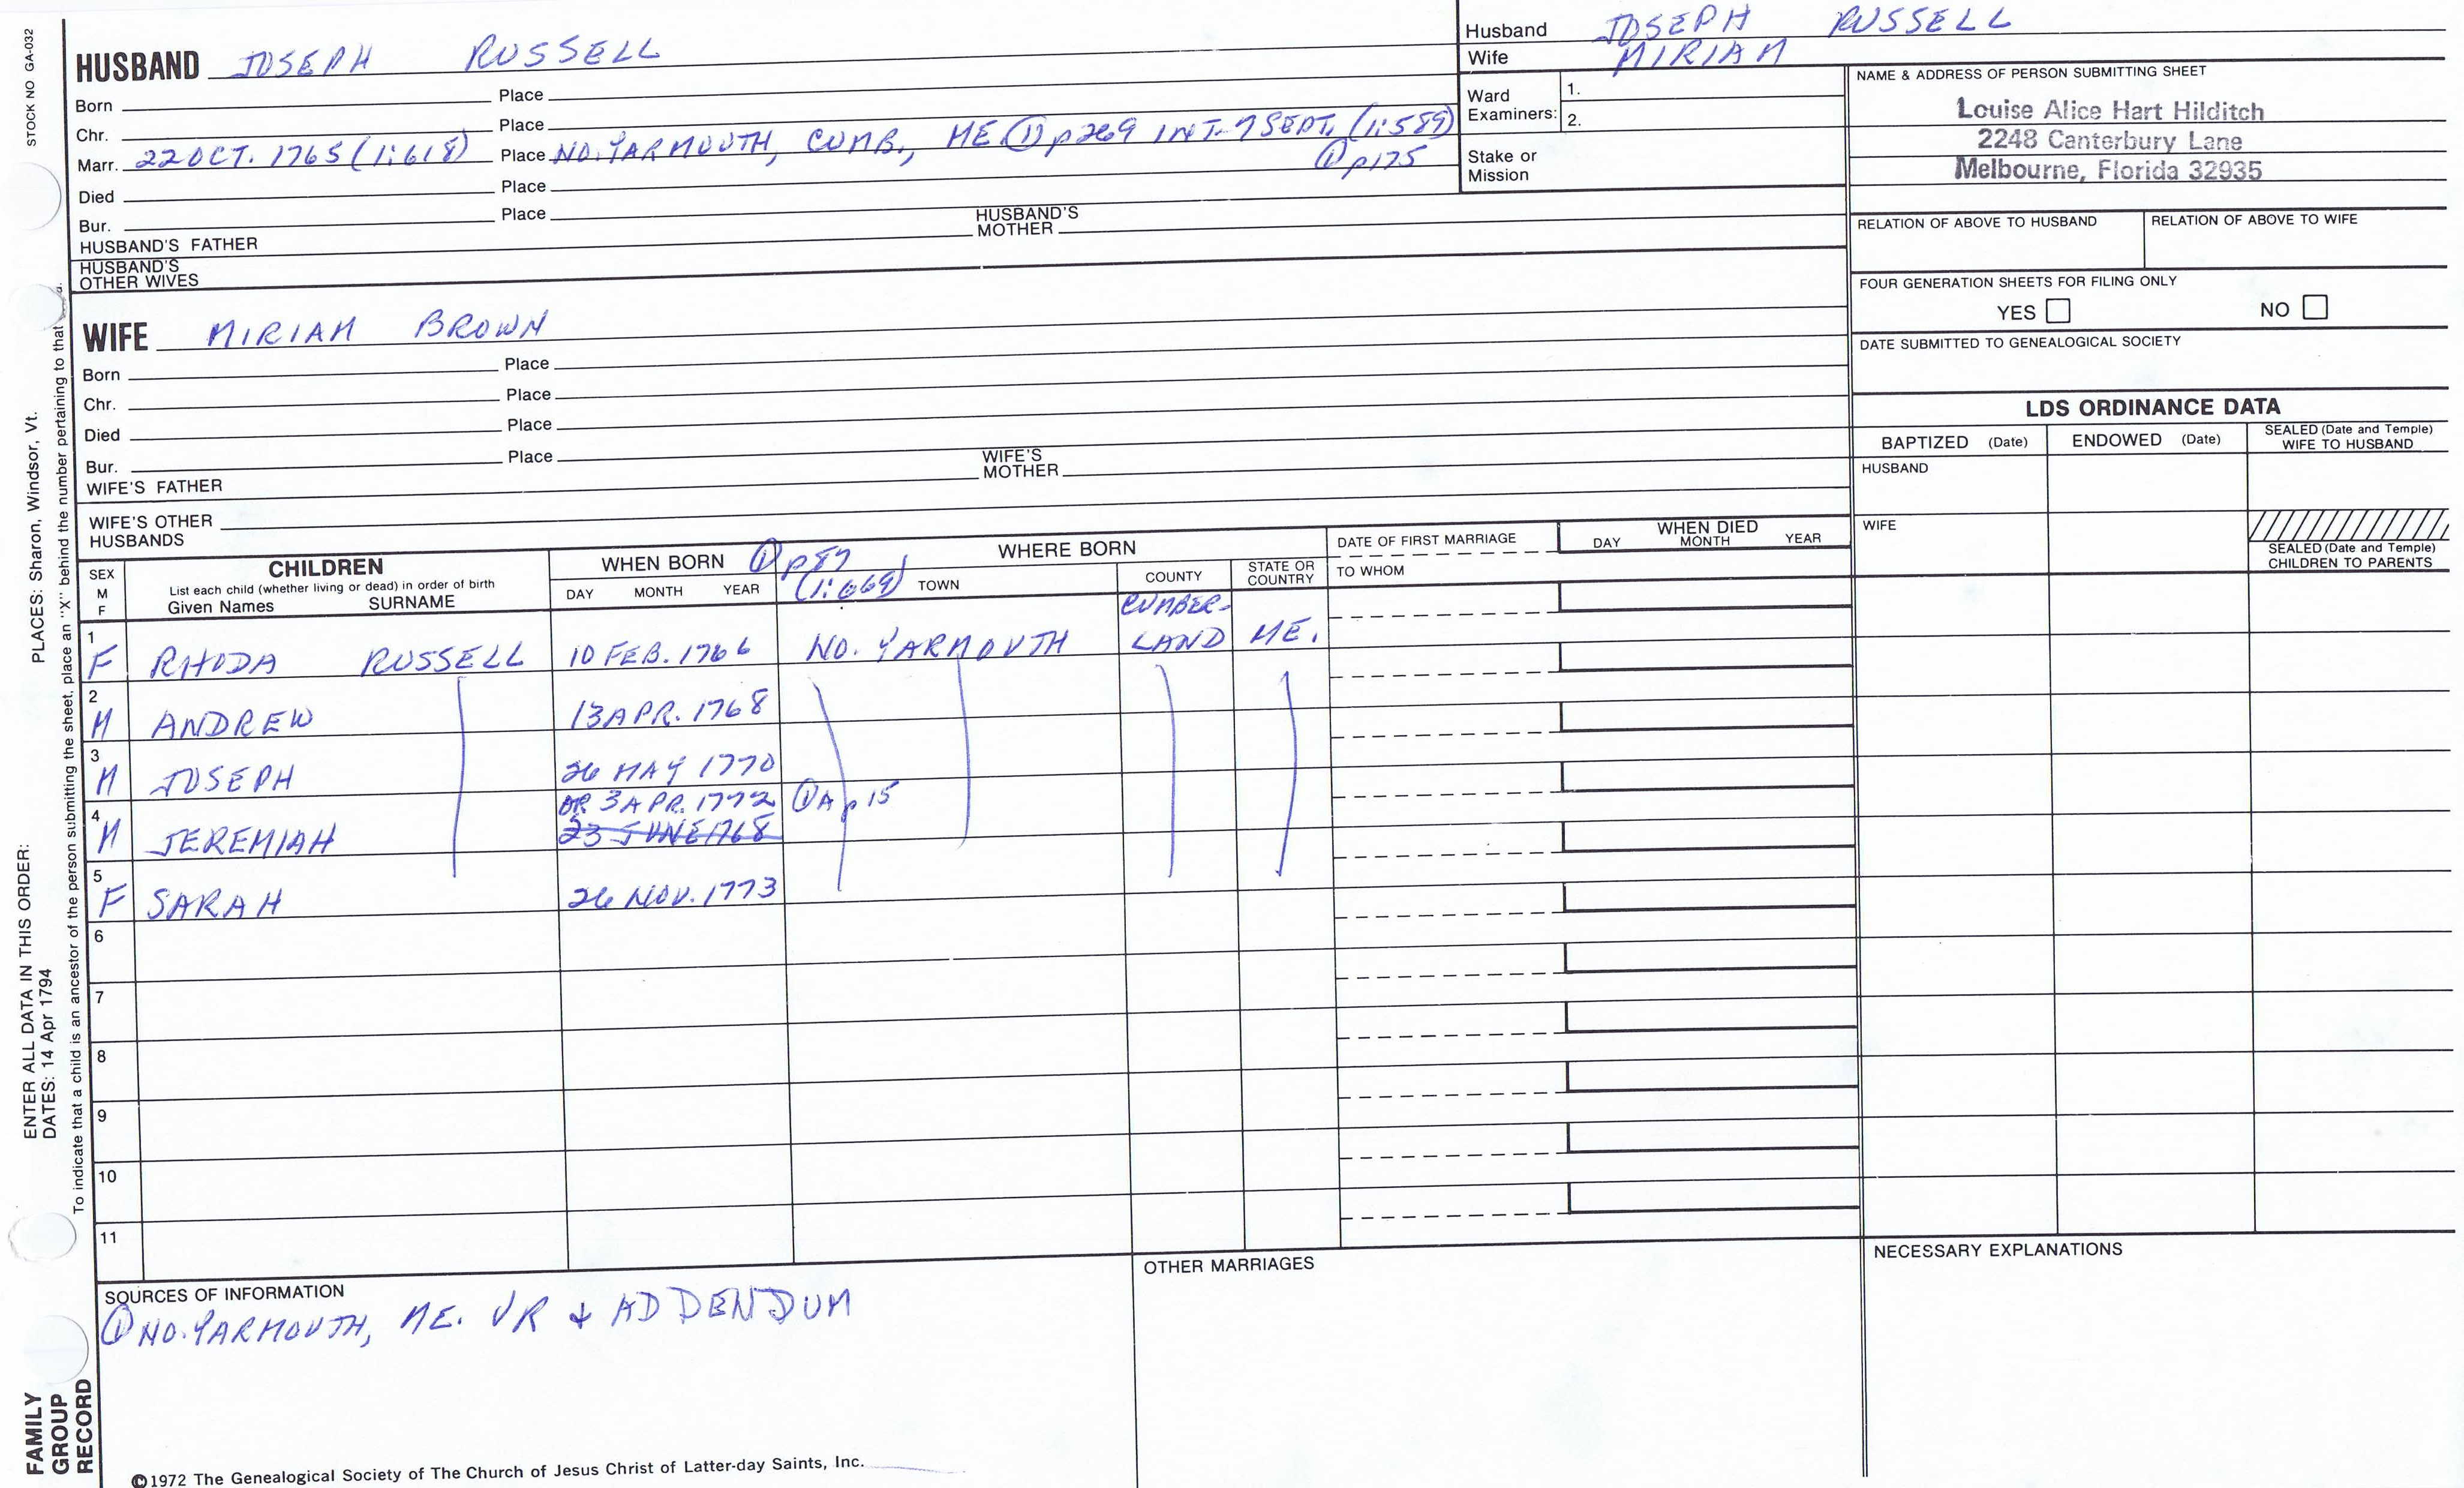 STOCK NO GA-032
PLACES: Sharon, Windsor, Vt.
ENTER ALL DATA IN THIS ORDER:
DATES: 14 Apr 1794
To indicate that a child is an ancestor of the person submitting the sheet, place an "X" behind the number pertaining to that
FAMILY GROUP RECORD
HUSBAND JOSEPH RUSSELL
Born Place
Chr. Place
Marr. 22 OCT. 1765 (1:618) Place NO. YARMOUTH, CUMB., ME ① p269 INT. 7 SEPT. (1:589)
① p175
Died Place
Bur. Place
HUSBAND'S FATHER HUSBAND'S MOTHER
HUSBAND'S OTHER WIVES
WIFE MIRIAM BROWN
Born Place
Chr. Place
Died Place
Bur. Place
WIFE'S FATHER WIFE'S MOTHER
WIFE'S OTHER HUSBANDS
Husband JOSEPH RUSSELL
Wife MIRIAM
Ward Examiners: 1.
2.
Stake or Mission
NAME & ADDRESS OF PERSON SUBMITTING SHEET
Louise Alice Hart Hilditch
2248 Canterbury Lane
Melbourne, Florida 32935
RELATION OF ABOVE TO HUSBAND RELATION OF ABOVE TO WIFE
FOUR GENERATION SHEETS FOR FILING ONLY
YES NO
DATE SUBMITTED TO GENEALOGICAL SOCIETY
LDS ORDINANCE DATA
BAPTIZED (Date) ENDOWED (Date) SEALED (Date and Temple) WIFE TO HUSBAND
HUSBAND
WIFE
SEALED (Date and Temple) CHILDREN TO PARENTS
SEX M F
CHILDREN
List each child (whether living or dead) in order of birth
Given Names SURNAME
WHEN BORN ① p87
DAY MONTH YEAR (1:669)
WHERE BORN
TOWN COUNTY STATE OR COUNTRY
DATE OF FIRST MARRIAGE
TO WHOM
WHEN DIED
DAY MONTH YEAR
1 F RHODA RUSSELL 10 FEB. 1766 NO. YARMOUTH CUMBER-LAND ME.
2 M ANDREW 13 APR. 1768
3 M JOSEPH 26 MAY 1770
OR 3 APR. 1772 ①A p 15
4 M JEREMIAH 23 JUNE 1768
5 F SARAH 26 NOV. 1773
6
7
8
9
10
11
SOURCES OF INFORMATION
① NO. YARMOUTH, ME. VR & ADDENDUM
OTHER MARRIAGES
NECESSARY EXPLANATIONS
©1972 The Genealogical Society of The Church of Jesus Christ of Latter-day Saints, Inc.